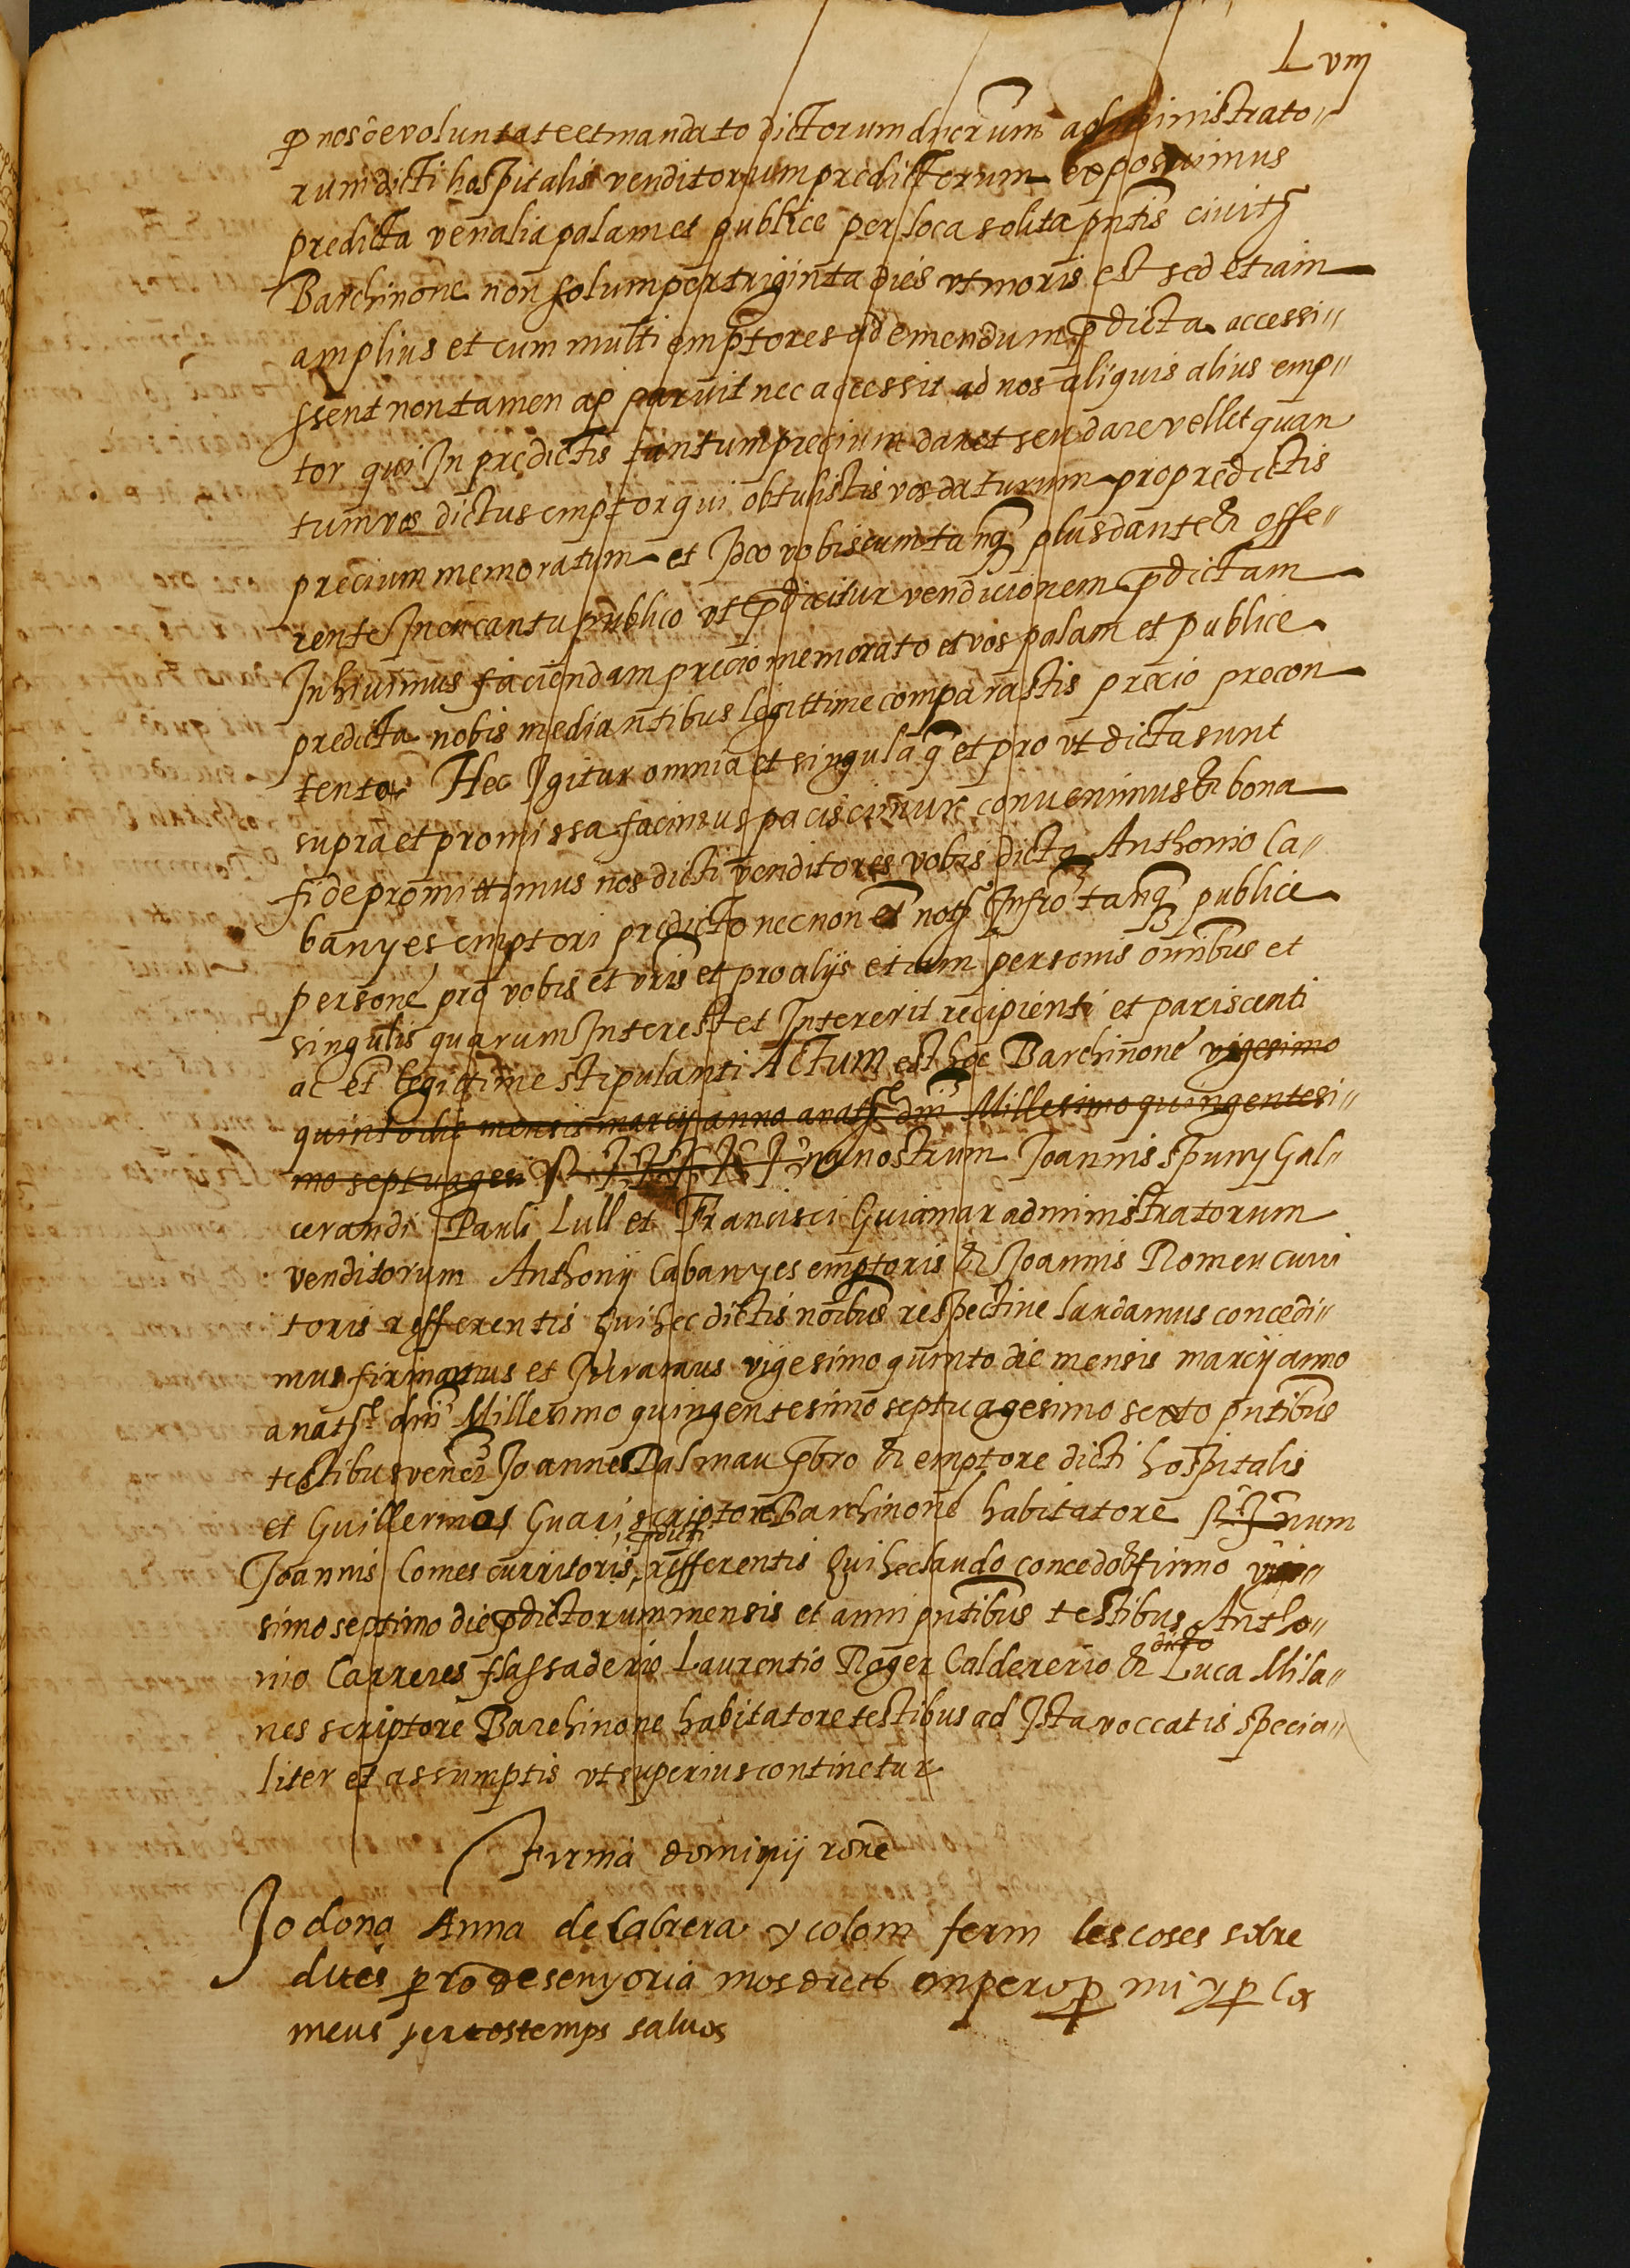 Lviij
p nos de voluntate et mandato dictorum dnorum administrato-
rum dicti hospitalis venditorum predictorum exposuimus
predicta venalia palam et publice per loca solita pntis ciuitt
Barchinone non solum per triginta dies vt moris est sed etiam
amplius et cum multi emptores ad emendum pdicta accessi-
ssent non tamen apparuit nec accessit ad nos aliquis alius emp-
tor qui In predictis tantum precium daret seu dare vellet quan
tum vos dictus emptor qui obtulistis vos daturum pro predictis
precium memoratum et Ideo vobiscum tanq plus dante & offe-
rente In encantu publico vt pdicitur vendicionem pdictam
Inhiuimus faciendam precio memorato et vos palam et publice
predicta nobis mediantibus legittime comparastis precio precon
tento Hec Igitur omnia et singula q et pro vt dicta sunt
supra et promissa facimus paciscimur conuenimus & bona
fide promittimus nos dicti venditores vobis dicto Anthonio Ca-
banyes emptori predicto nec non et nott Infro tanq publice
persone pro vobis et vris et pro alijs etiam personis omnibus et
singulis quarum Interest et Intererit recipienti et pasiscenti
ac et legittime stipulanti Actum est hoc Barchinone vigesimo
quinto die mensis marcij anno a natte dni Millesimo quingentesi-
mo septuagen na nostrum Joannis Spuny Gal-
cerandi Pauli Lull et Francisci Guiamar administratorum
venditorum Anthonij Cabanyes emptoris & Joannis Romeu curri
toris refferentis Qui hec dictis noibus respectiue laudamus concedi-
mus firmamus et Juramus vigesimo quinto die mensis marcij anno
a natte dni Millesimo quingentesimo septuagesimo sexto pntibus
testibus vener Joanne Dalmau pbro & emptore dicti hospitalis
et Guillermo Guari scriptore Barchinone habitatore num
Joannis Comes curritoris pdicti refferentis Qui hec laudo concedo & firmo
simo septimo die pdictorum mensis et anni pntibus testibus Antho-
nio Carreres flassaderio Laurentio Roger Caldererio & dicto Luca Mila-
nes scriptore Barchinone habitatore testibus ad Ista voccatis specia-
liter et assumptis vt superius continetur
Firma dominij rone
Jo dona Anna de Cabrera y colom ferm les coses sobre
dites p ro de senyoria mos drets empero p mi y p los
meus per tostemps saluos